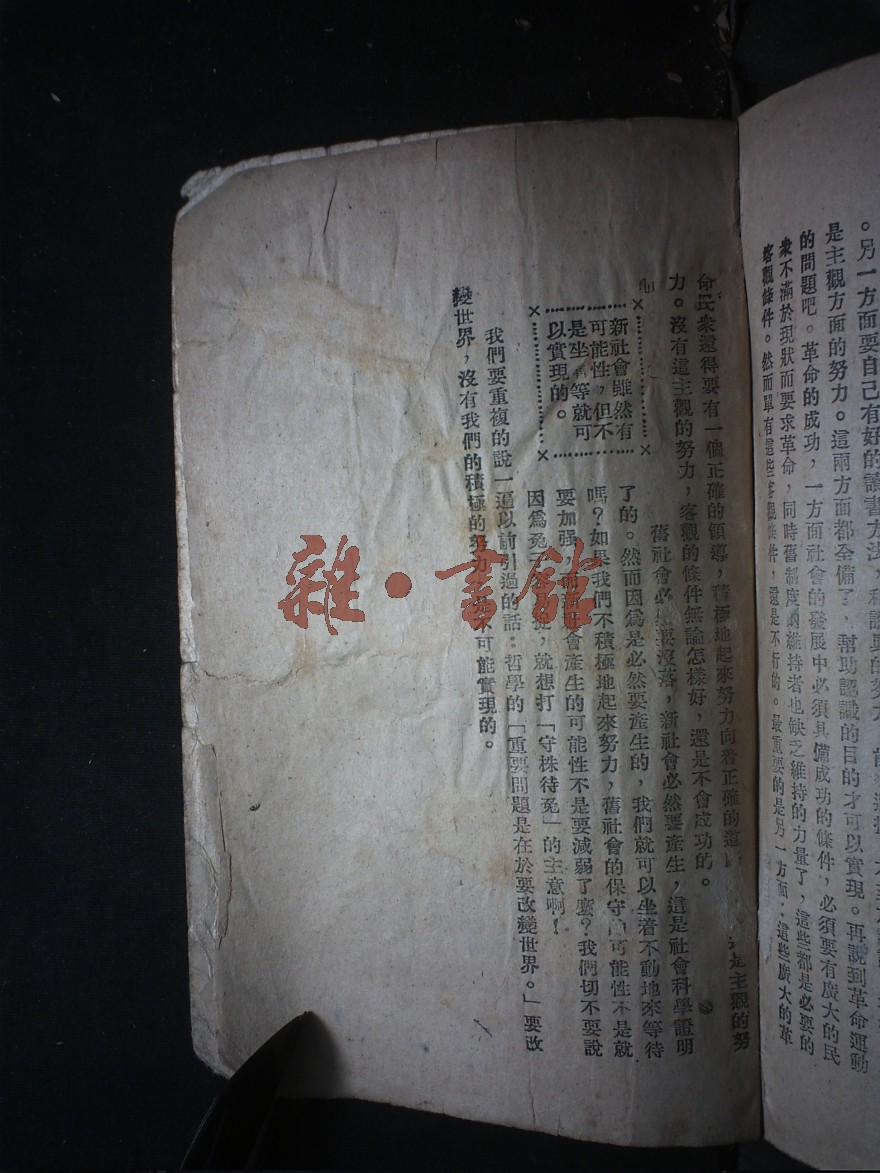 。另一方面要自己有好的讀書方法,
是主觀方面的努力。這兩方面都全備了,幫助認識的目的才可以實現。再說到革命運動
的問題吧。革命的成功,一方面社會的發展中必須具備成功的條件,必須要有廣大的民
衆不滿於現狀而要求革命,同時舊制度的維持者也缺乏維持的力量了,這些都是必要的
客觀條件。然而單有這些客觀條件,還是不行的。最重要的是另一方面:這些廣大的革
命民衆還得要有一個正確的領導,積極地起來努力向着正確的道 是主觀的努
力。沒有這主觀的努力,客觀的條件無論怎樣好,還是不會成功的。
新社會雖然有
可能性,但不
是坐 等就可
以實現的。
舊社會必 要沒落,新社會必然要產生,這是社會科學證明
了的。然而因爲是必然要產生的,我們就可以坐着不動地來等待
嗎?如果我們不積極地起來努力,舊社會的保守 可能性不是就
要加强,而新社會產生的可能性不是要減弱了麽?我們切不要說
因爲兔子 ,就想打「守株待兔」的主意啊!
我們要重複的說一遍以前引過的話:哲學的「重要問題是在於要改變世界。」要改
變世界,沒有我們的積極的努力, 不可能實現的。
雜·書館